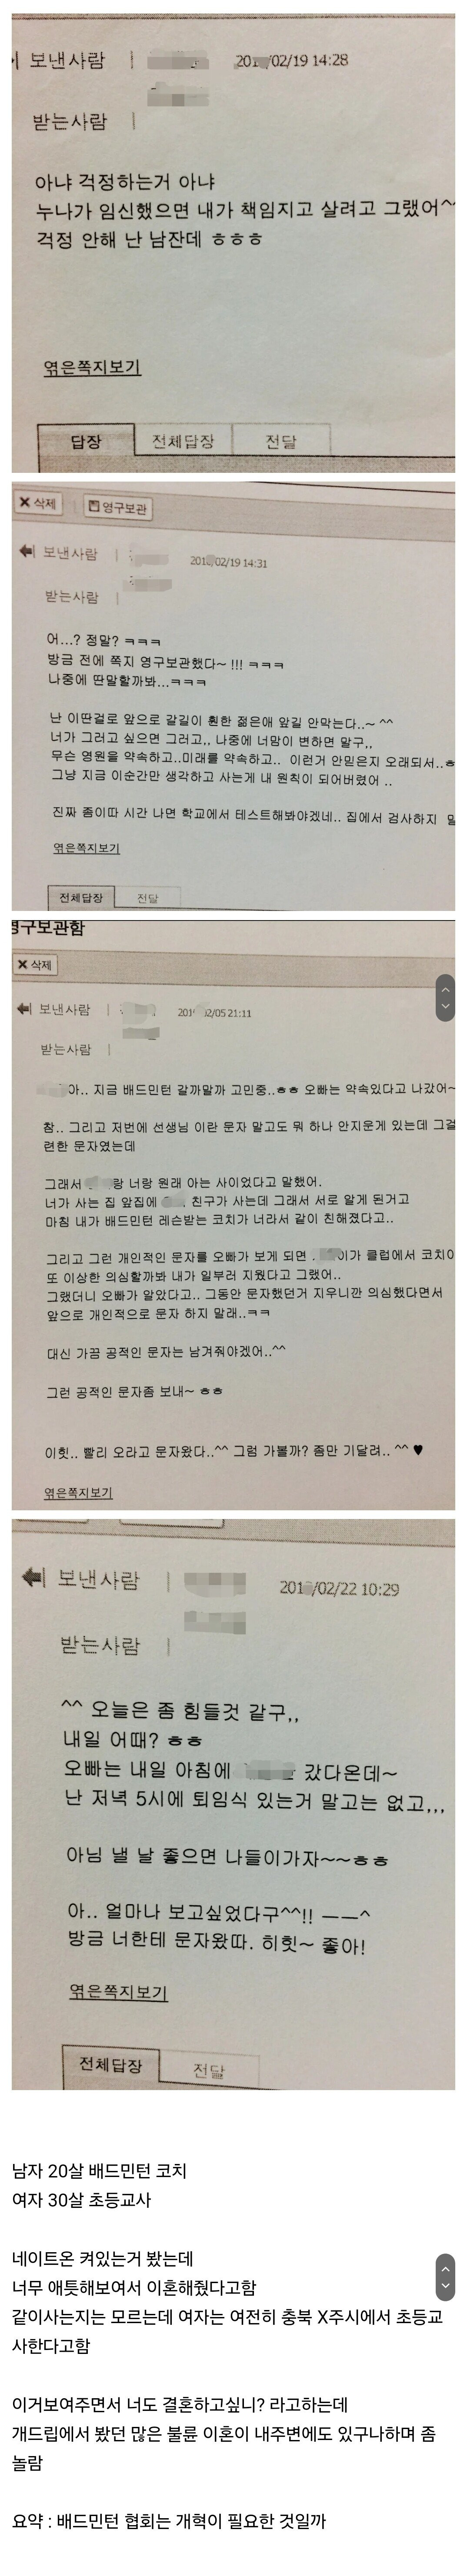 보낸사람
201 /02/19 14:28
받는사람
아냐 걱정하는거 아냐
누나가 임신했으면 내가 책임지고 살려고 그랬어^^
걱정 안해 난 남잔데 ㅎㅎㅎ
엮은쪽지보기
답장 전체답장 전달
✕ 삭제 영구보관
보낸사람
201 /02/19 14:31
받는사람
어...? 정말? ㅋㅋㅋ
방금 전에 쪽지 영구보관했다~ !!! ㅋㅋㅋ
나중에 딴말할까봐...ㅋㅋㅋ
난 이딴걸로 앞으로 갈길이 훤한 젊은애 앞길 안막는다..~ ^^
너가 그러고 싶으면 그러고,, 나중에 너맘이 변하면 말구,,
무슨 영원을 약속하고..미래를 약속하고.. 이런거 안믿은지 오래되서..ㅎ
그냥 지금 이순간만 생각하고 사는게 내 원칙이 되어버렸어 ..
진짜 좀이따 시간 나면 학교에서 테스트해봐야겠네.. 집에서 검사하지 말
엮은쪽지보기
전체답장 전달
영구보관함
✕ 삭제
보낸사람
201 02/05 21:11
받는사람
아.. 지금 배드민턴 갈까말까 고민중..ㅎㅎ 오빠는 약속있다고 나갔어~
참.. 그리고 저번에 선생님 이란 문자 말고도 뭐 하나 안지운게 있는데 그걸
련한 문자였는데
그래서 랑 너랑 원래 아는 사이었다고 말했어.
너가 사는 집 앞집에 친구가 사는데 그래서 서로 알게 된거고
마침 내가 배드민턴 레슨받는 코치가 너라서 같이 친해졌다고..
그리고 그런 개인적인 문자를 오빠가 보게 되면 이가 클럽에서 코치이
또 이상한 의심할까봐 내가 일부러 지웠다고 그랬어..
그랬더니 오빠가 알았다고.. 그동안 문자했던거 지우니깐 의심했다면서
앞으로 개인적으로 문자 하지 말래..ㅋㅋ
대신 가끔 공적인 문자는 남겨줘야겠어..^^
그런 공적인 문자좀 보내~ ㅎㅎ
이힛.. 빨리 오라고 문자왔다..^^ 그럼 가볼까? 좀만 기달려.. ^^ ♥
엮은쪽지보기
보낸사람
201 /02/22 10:29
받는사람
^^ 오늘은 좀 힘들것 같구,,
내일 어때? ㅎㅎ
오빠는 내일 아침에 갔다온데~
난 저녁 5시에 퇴임식 있는거 말고는 없고,,,
아님 낼 날 좋으면 나들이가자~~ㅎㅎ
아.. 얼마나 보고싶었다구^^!! ㅡㅡ^
방금 너한테 문자왔따. 히힛~ 좋아!
엮은쪽지보기
전체답장 전달
남자 20살 배드민턴 코치
여자 30살 초등교사
네이트온 켜있는거 봤는데
너무 애틋해보여서 이혼해줬다고함
같이사는지는 모르는데 여자는 여전히 충북 X주시에서 초등교
사한다고함
이거보여주면서 너도 결혼하고싶니? 라고하는데
개드립에서 봤던 많은 불륜 이혼이 내주변에도 있구나하며 좀
놀람
요약 : 배드민턴 협회는 개혁이 필요한 것일까